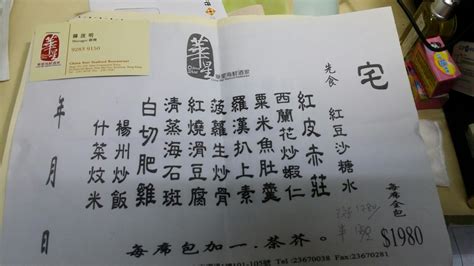 陳茂明
Manager 經理
9283 9150
China Star Seafood Restaurant
華星
華星海鮮酒家
宅
先食
紅豆沙糖水
紅皮赤莊
西蘭花炒蝦仁
粟米魚肚羹
羅漢扒上素
菠蘿生炒骨
紅燒滑豆腐
清蒸海石斑
白切肥雞
楊州炒飯
什菜炆米
年 月 日
每席全包
$1980
每席包加一．茶芥。
101-105號
Tel:23670038
Fax:23670281